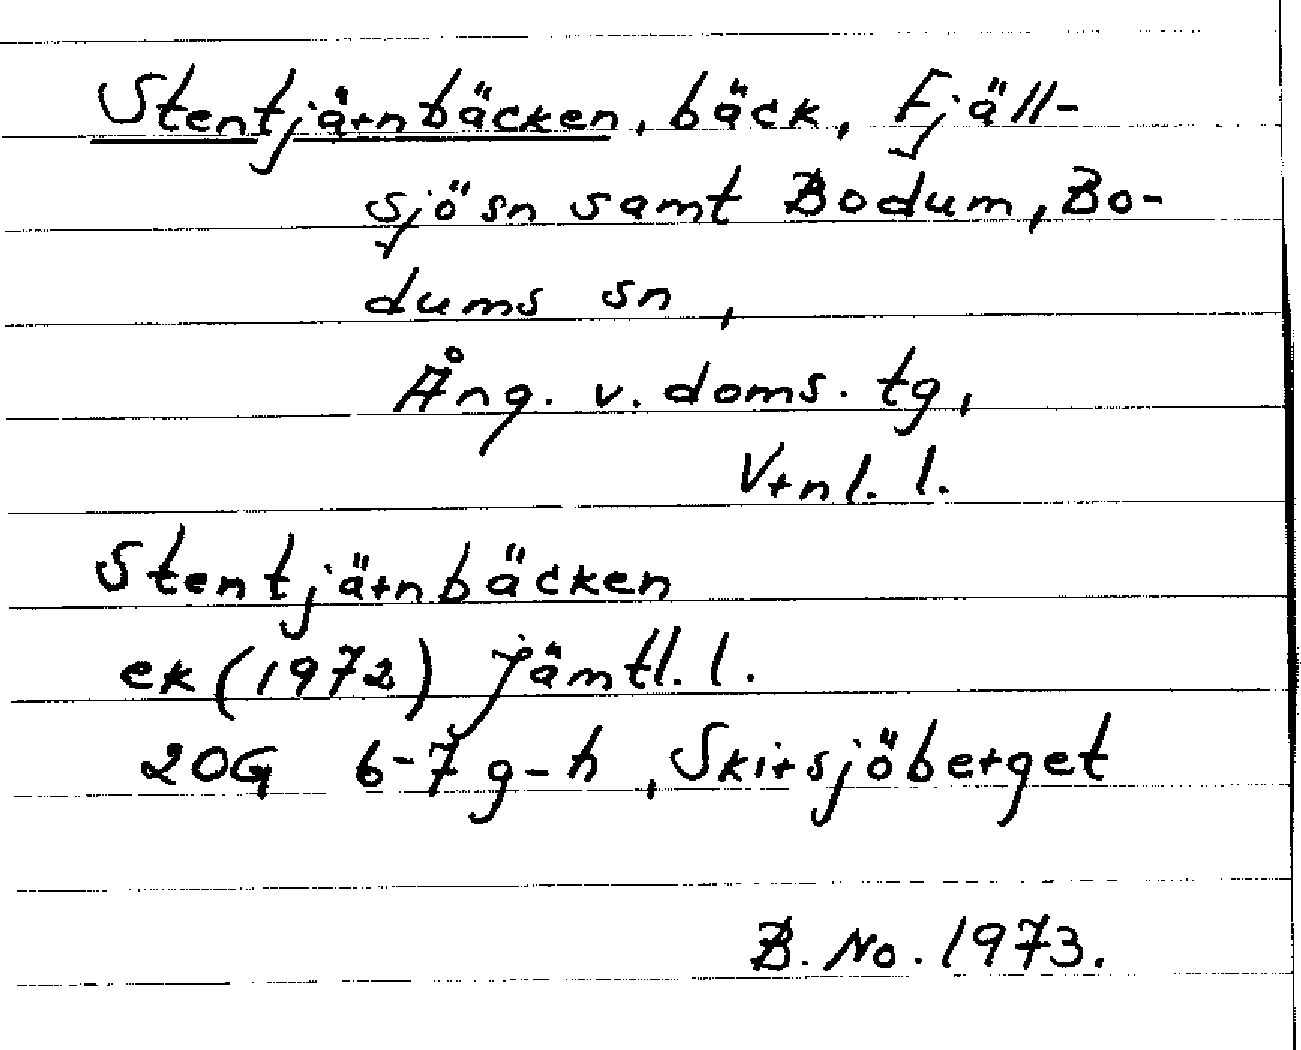 Stentjärnbäcken, bäck, Fjäll-
sjö sn samt Bodum, Bo-
dums sn,
Ång. v. doms. tg,
Vrnl. l.
Stentjärnbäcken
ek (1972) Jämtl. l.
20G 6-7 g-h, Skirsjöberget
B. No. 1973.